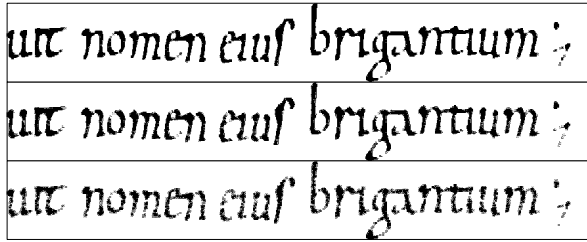 uit nomen eiuſ brigantium ;
uit nomen eiuſ brigantium ;
uit nomen eiuſ brigantium ;